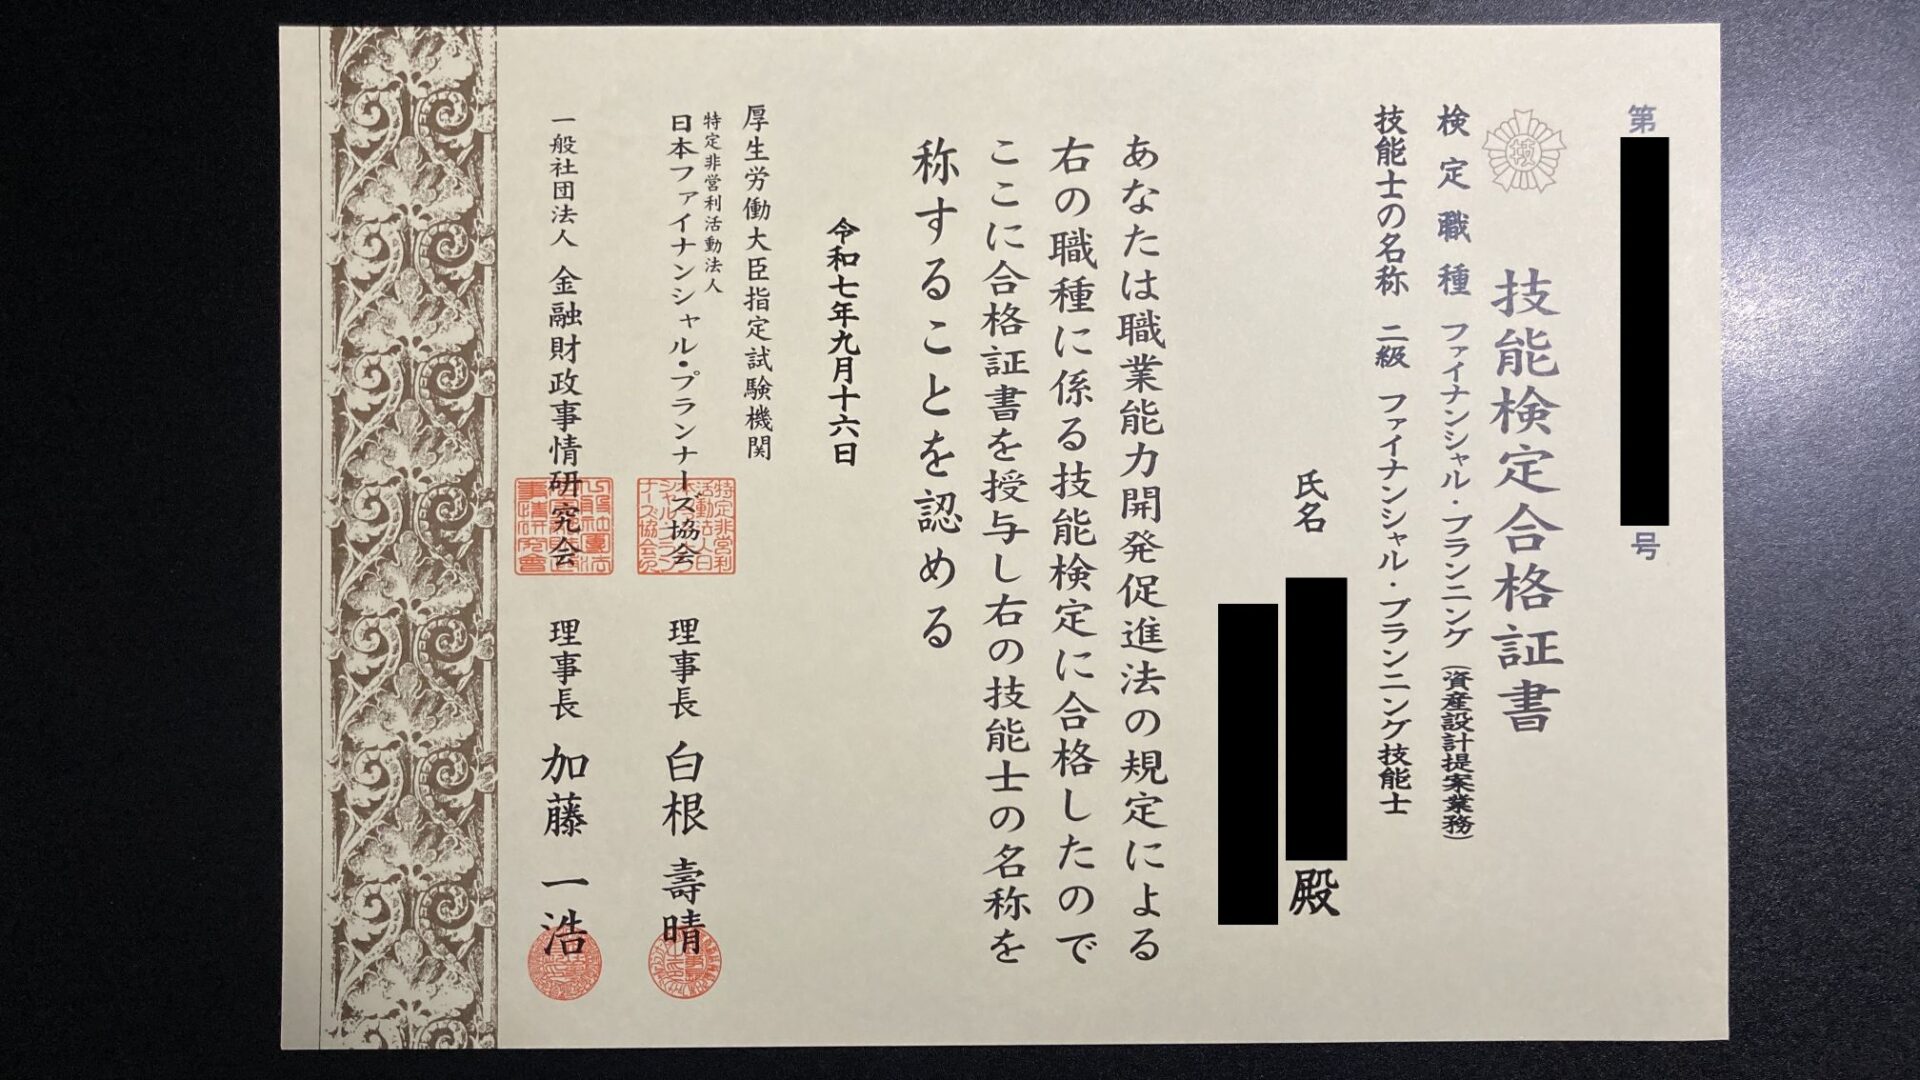 第
号
技
技能検定合格証書
検定職種 ファイナンシャル・プランニング(資産設計提案業務)
技能士の名称 二級 ファイナンシャル・プランニング技能士
氏名
殿
あなたは職業能力開発促進法の規定による
右の職種に係る技能検定に合格したので
ここに合格証書を授与し右の技能士の名称を
称することを認める
令和七年九月十六日
厚生労働大臣指定試験機関
特定非営利活動法人
日本ファイナンシャル・プランナーズ協会 理事長 白根 壽晴
一般社団法人 金融財政事情研究会 理事長 加藤 一浩